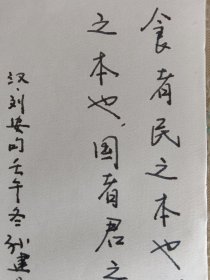 食者民之本也
之本也，国者君之
汉·刘安句壬午冬